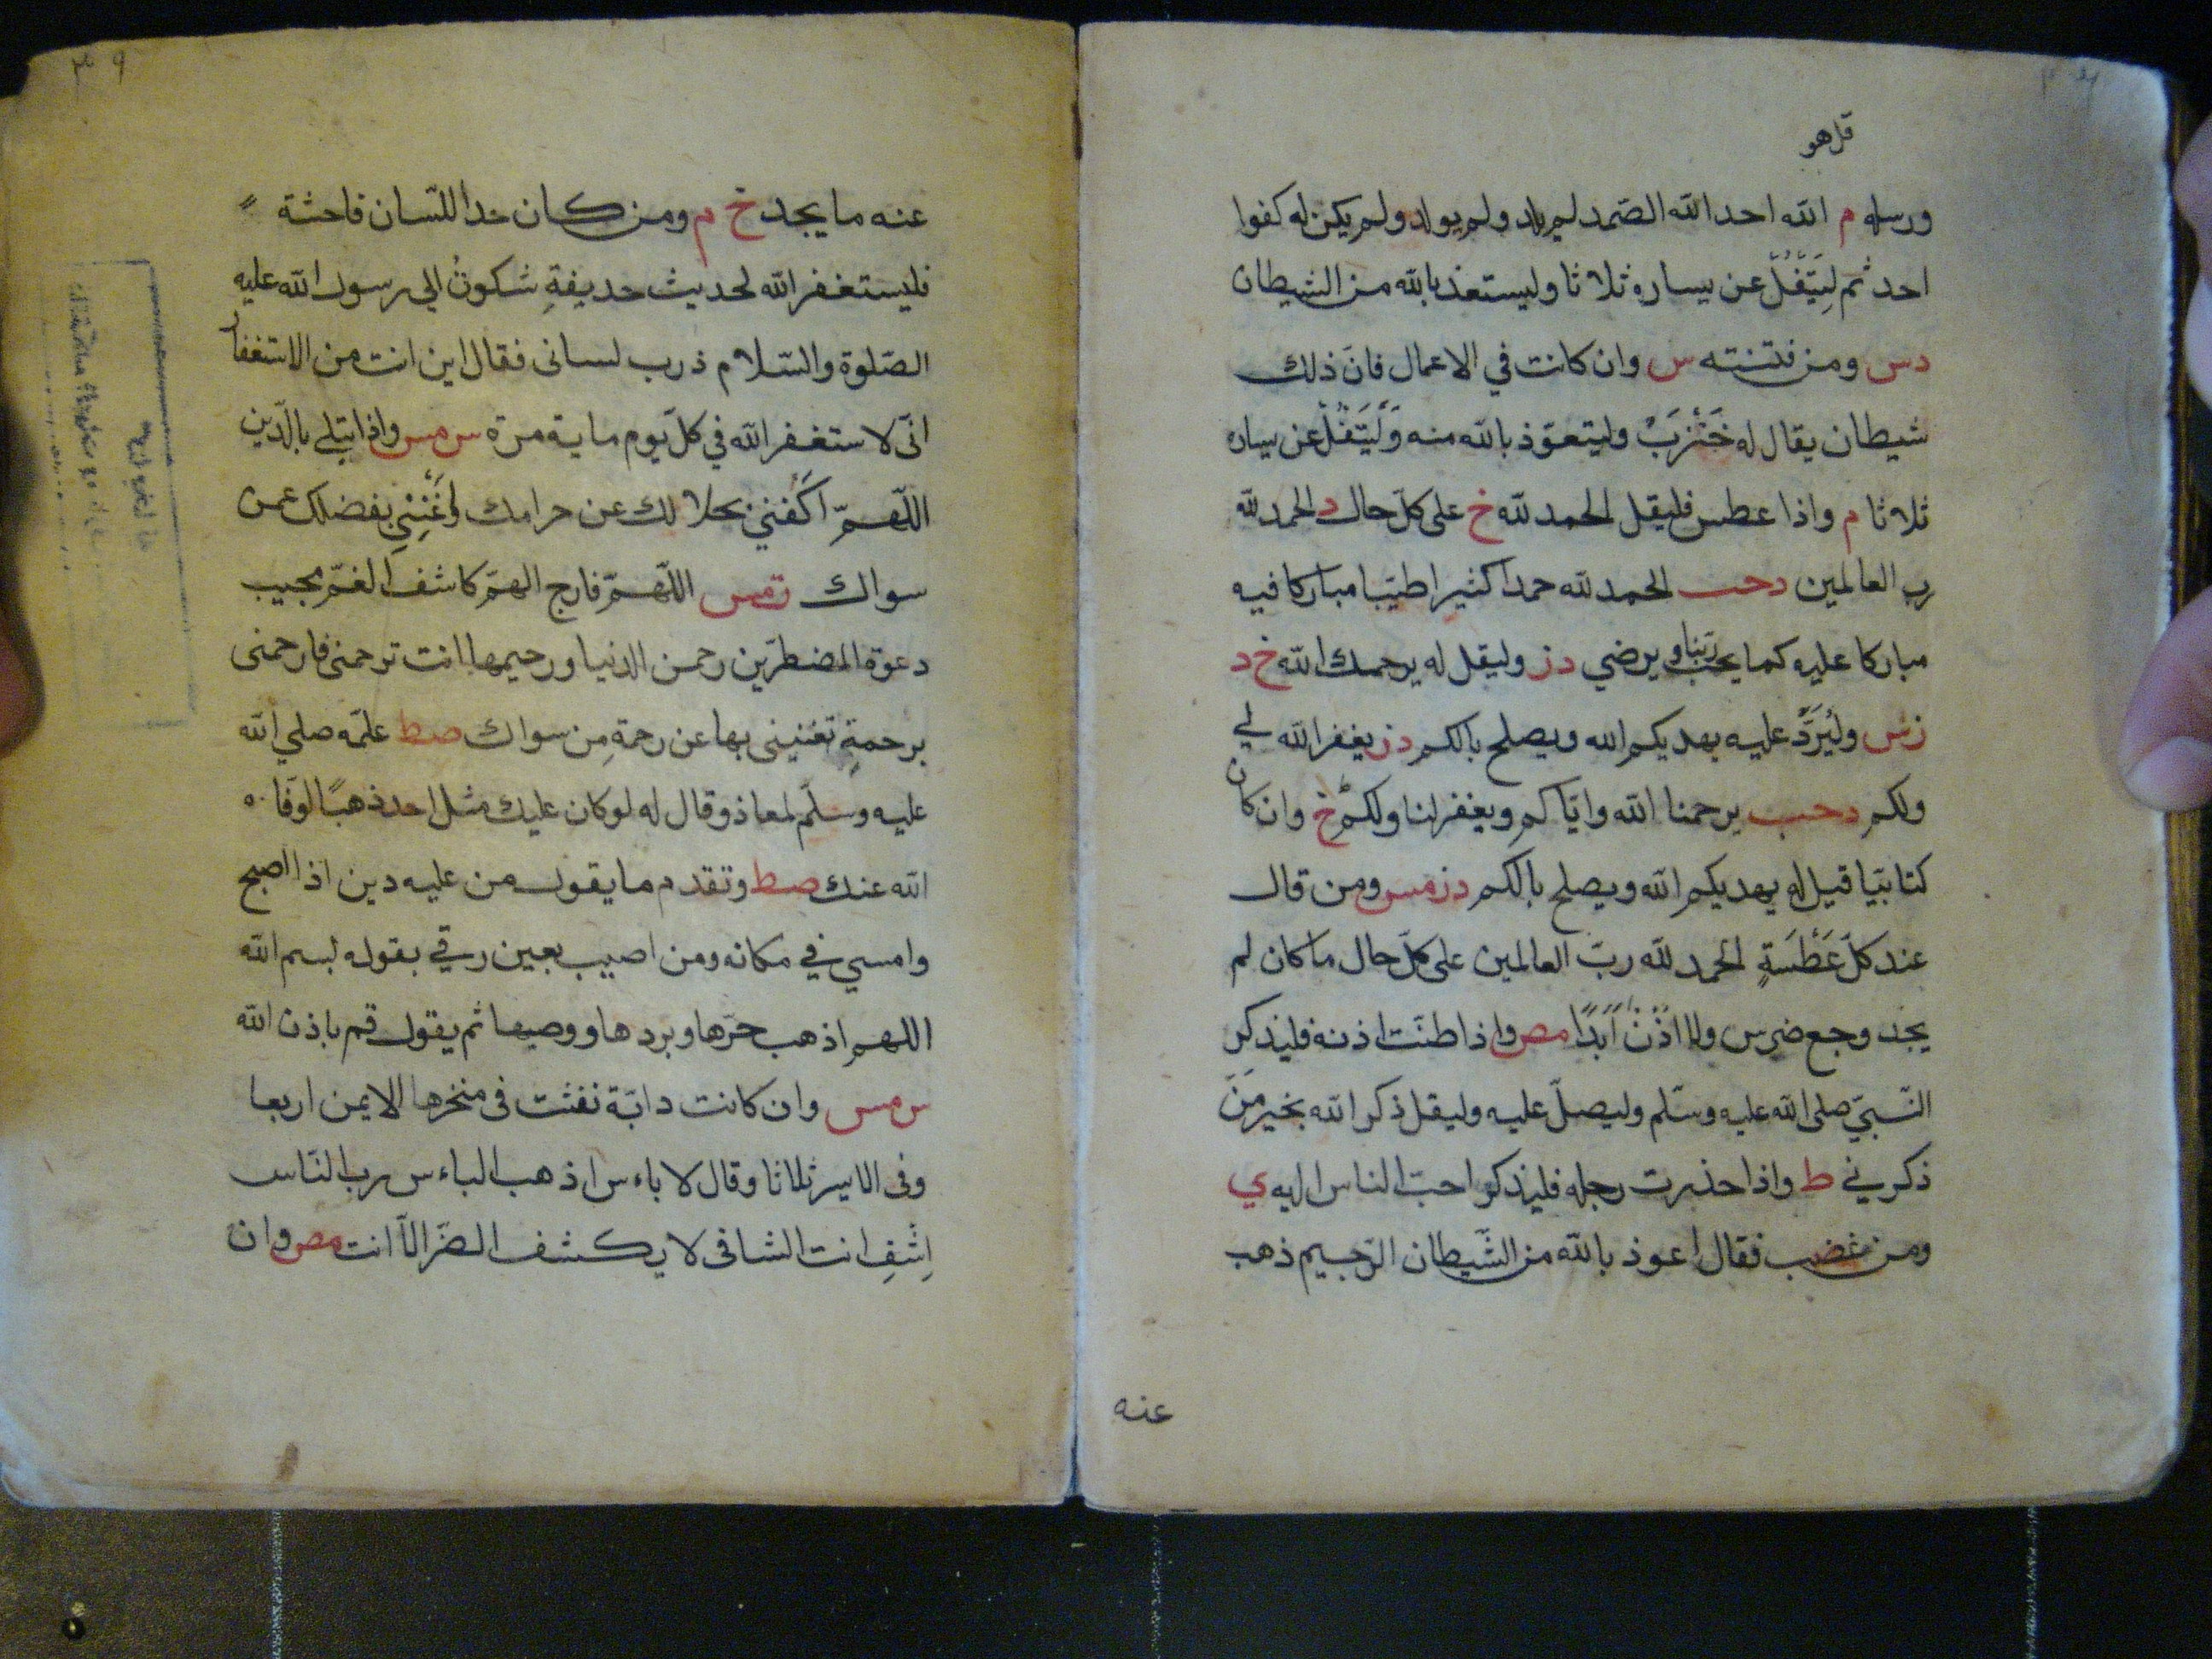 قل هو
ورسله م الله احد الله الصّمد لم يلد ولم يولد ولم يكن له كفوا
احد ثم لِيَتْفُلْ عن يساره ثلاثا وليستعذ بالله من الشيطان
دس ومن فتنته س وان كانت في الاعمال فانّ ذلك
شيطان يقال له خَنْزَبْ وليتعوّذ بالله منه وَلْيَتْفُلْ عن يساره
ثلاثا م واذا عطس فليقل الحمد لله خ على كلّ حال د الحمد لله
رب العالمين دحب الحمد لله حمدا كثيرا طيّبا مباركا فيه
مباركا عليه كما يحبّ ربّنا ويرضي دز وليقل له يرحمك الله خ د
زس ولْيَرُدَّ عليه يهديكم الله ويصلح بالكم دز يغفر الله لي
ولكم دحب يرحمنا الله وايّاكم ويغفر لنا ولكم خ وان كان
كتابيّا قيل له يهديكم الله ويصلح بالكم دزمس ومن قال
عند كلّ عَطْسَةٍ الحمد لله ربّ العالمين على كلّ حال ما كان لم
يجد وجع ضرس ولا اذُنْ اَبَدًا مص واذا طنّت اذنه فليذكر
النّبيّ صلى الله عليه وسلّم وليصلّ عليه وليقل ذكر الله بخير مَنْ
ذكرني ط واذا خذرت رجله فليذكر احبّ الناس اليه ي
ومن غضب فقال اعوذ بالله من الشّيطان الرّجيم ذهب
عنه
٣٩
عنه ما يجد خ م ومن كان حدا اللّسان فاحشة
فليستغفر الله لحديث حديفةِ شكوتُ الي رسول الله عليه
الصّلوة والسّلام ذرب لسانى فقال اين انت من الاستغفار
انّى لاستغفر الله في كلّ يوم ماية مرّة س مس واذا ابتلي بالدّين
اللّهمّ اكْفني بحلالك عن حرامك وَاغْنِنِي بفضلك عمن
سواك تمس اللّهمّ فارج الهمّ كاشف الغمّ مجيب
دعوة المضطرّين رحمن الدنيا ورحيمها انت ترحمنى فارحمنى
برحمةٍ تغنينى بها عن رحمة مِن سواك صط علّمه صلي الله
عليه وسلّم لمعاذ وقال له لو كان عليك مثل احد ذهبًا لوفّا
الله عنك صط وتقدم ما يقول من عليه دين اذا اصبح
وامسي في مكانه ومن اصيب بعين رقي بقوله بسم الله
اللهم اذهب حرّها وبردها ووصبها ثم يقول قم باذن الله
س مس وان كانت دابّة نفثت فى منخرها الايمن اربعا
وفى الايسر ثلاثا وقال لا باءس اذهب الباءس رب النّاس
اِشْفِ انت الشافى لا يكشف الضّر الّا انت مص وان